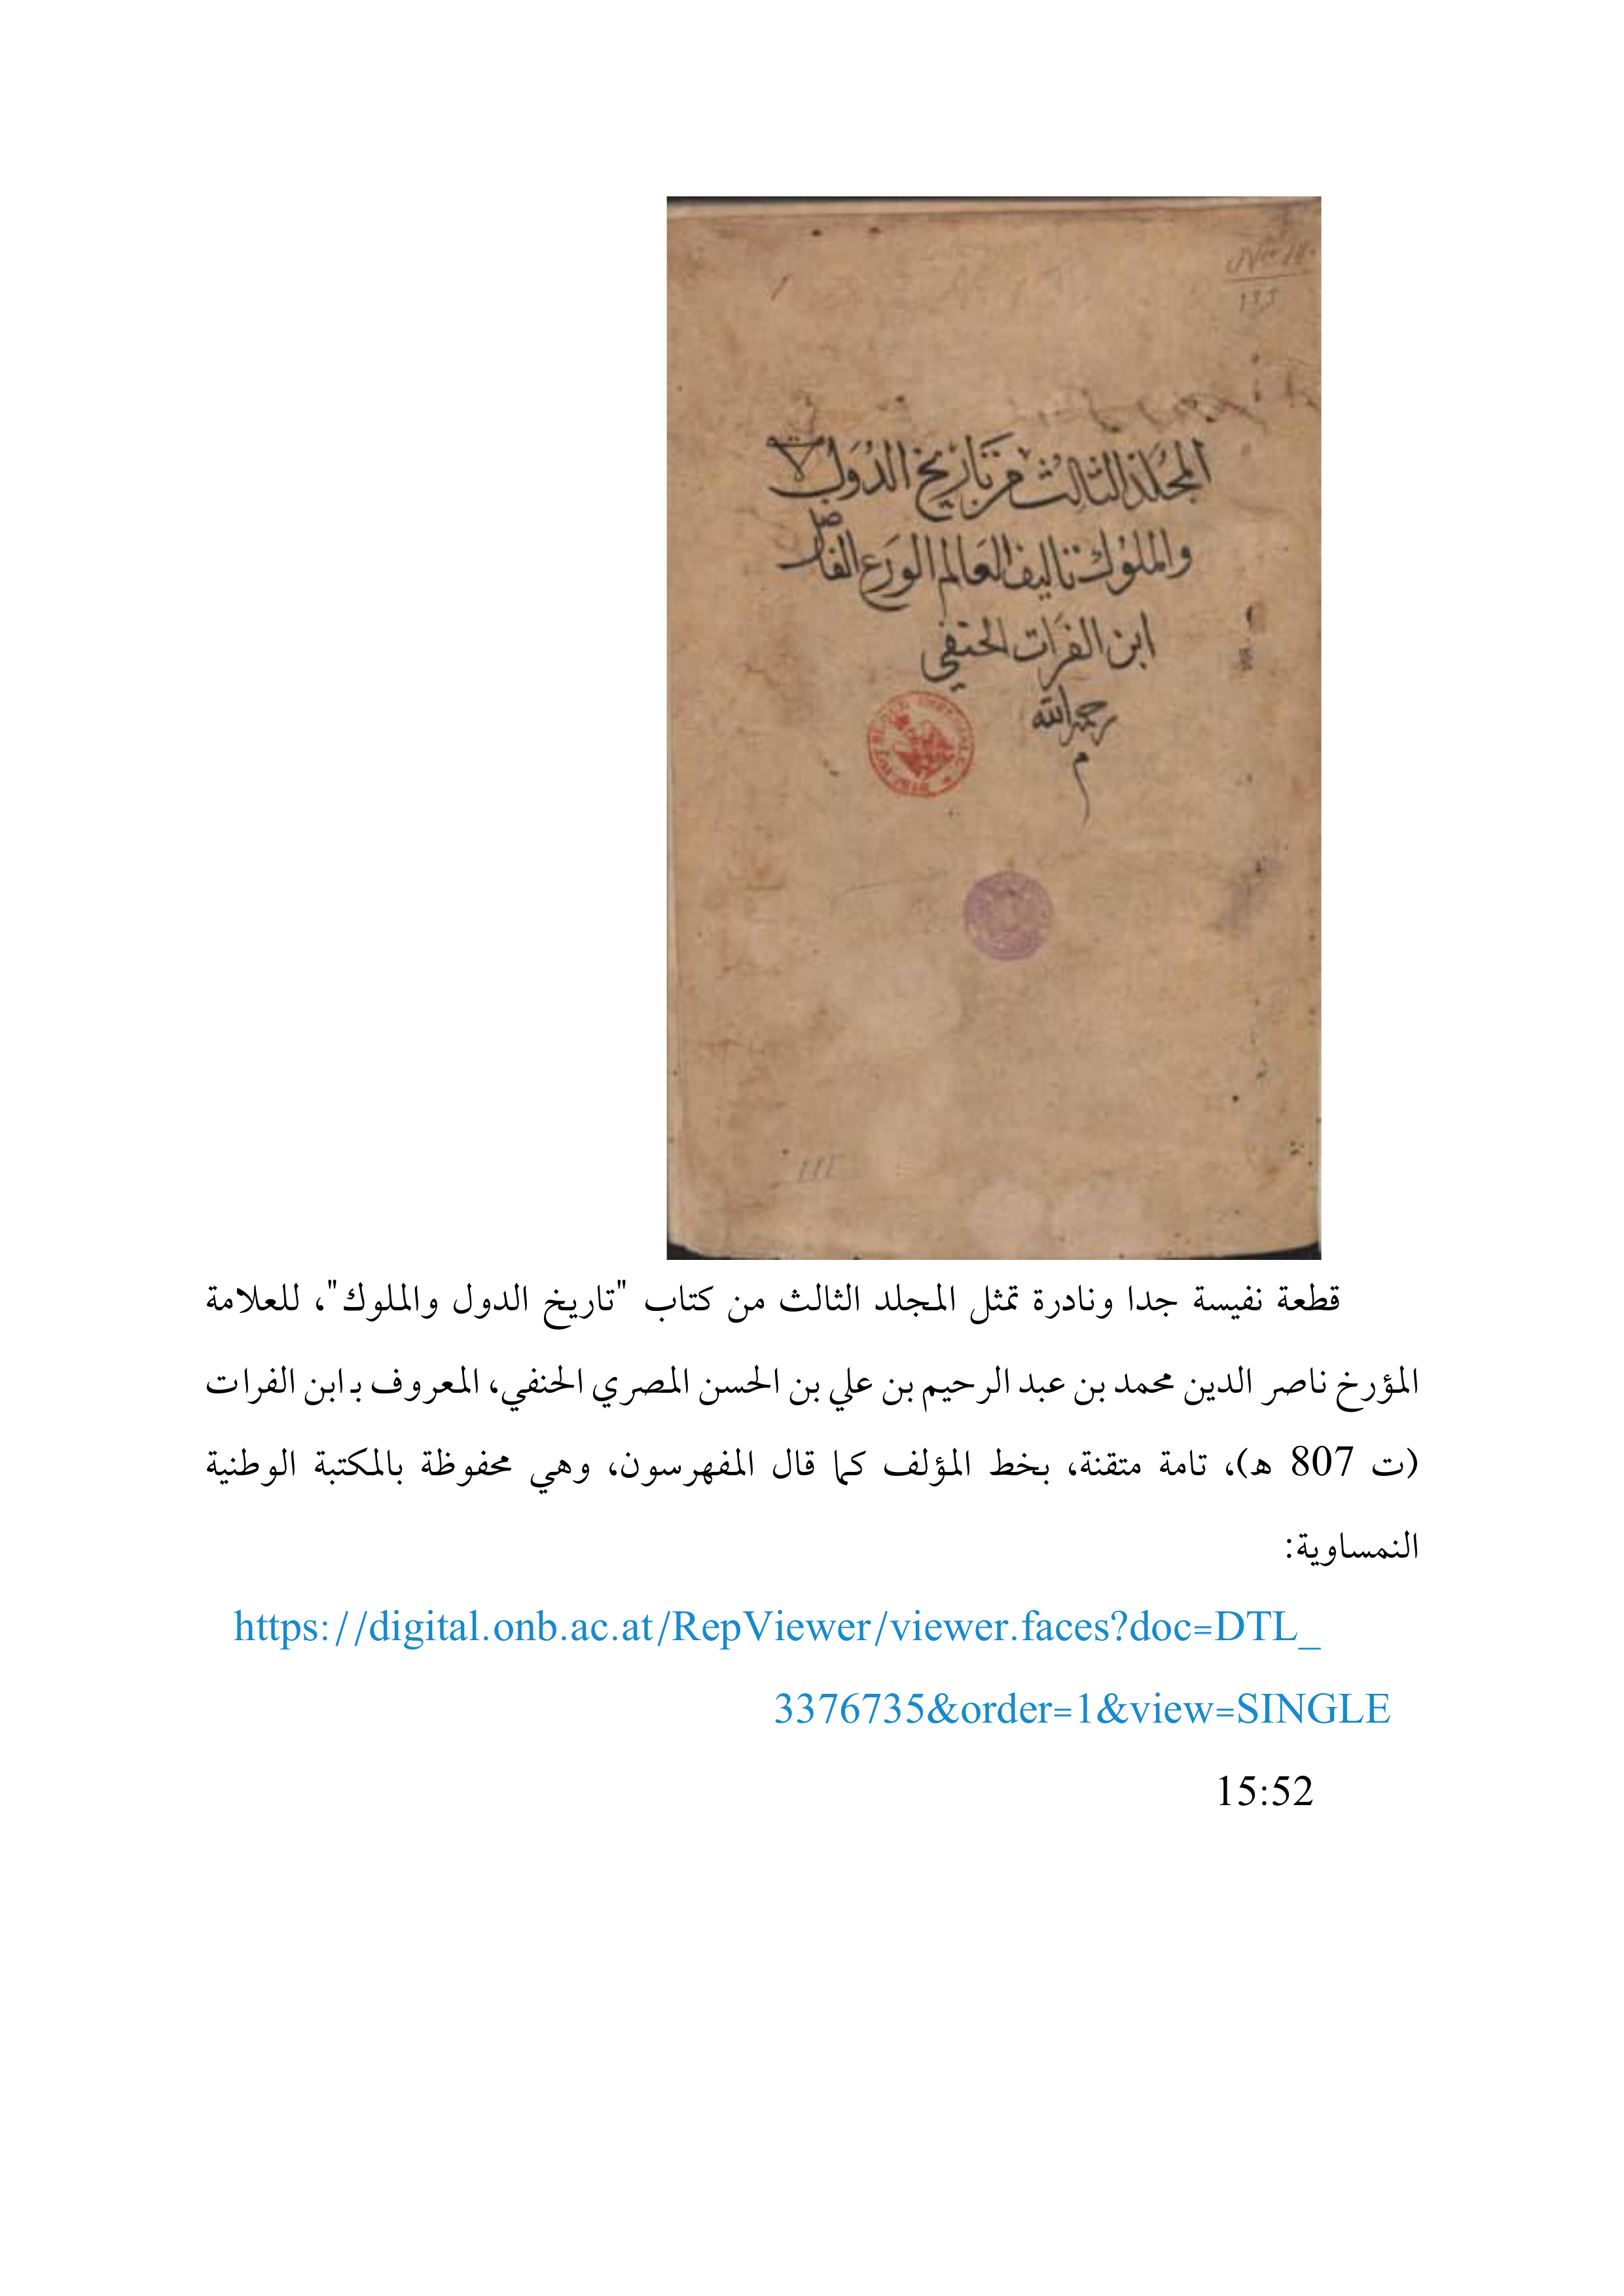 المجلد الثالث من تاريخ الدول
والملوك تاليف العالم الورع الفاضل
ابن الفرات الحنفي
رحمه الله
م
III
قطعة نفيسة جدا ونادرة تمثل المجلد الثالث من كتاب "تاريخ الدول والملوك"، للعلامة
المؤرخ ناصر الدين محمد بن عبد الرحيم بن علي بن الحسن المصري الحنفي، المعروف بـ ابن الفرات
(ت 807 هـ)، تامة متقنة، بخط المؤلف كما قال المفهرسون، وهي محفوظة بالمكتبة الوطنية
النمساوية:
https://digital.onb.ac.at/RepViewer/viewer.faces?doc=DTL_
3376735&order=1&view=SINGLE
15:52